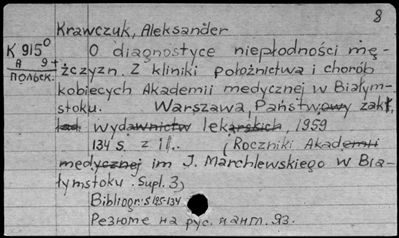 8
Krawczuk, Aleksander
К 915⁰ O diagnostyce niepłodności mę-
А 9+ żczyzn. Z kliniki położnictwa i chorób
ПОЛЬСК. kobiecych Akademii medycznej w Białym-
stoku. Warszawa, Państwowy zakł.
wydawnictw lekarskich, 1959
134 s. z il. (Roczniki Akademii
medycznej im J. Marchlewskiego w Bia-
łymstoku. Supl. 3)
Bibliogr: s 125-134
Резюме на рус. и англ. яз.